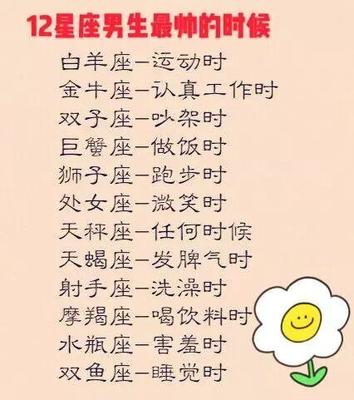 12星座男生最帅的时候
白羊座-运动时
金牛座-认真工作时
双子座-吵架时
巨蟹座-做饭时
狮子座-跑步时
处女座-微笑时
天秤座-任何时候
天蝎座-发脾气时
射手座-洗澡时
摩羯座-喝饮料时
水瓶座-害羞时
双鱼座-睡觉时